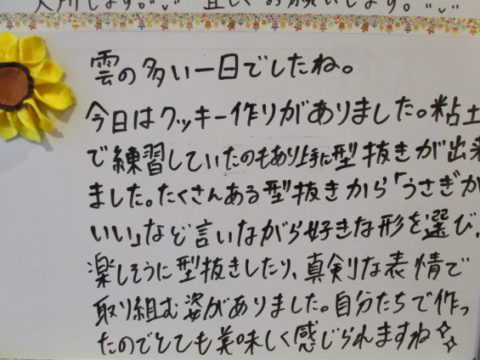 入所します。宜しくお願いします。
雲の多い一日でしたね。
今日はクッキー作りがありました。粘土
で練習していたのもあり上手に型抜きが出来
ました。たくさんある型抜きから「うさぎが
いい」など言いながら好きな形を選び、
楽しそうに型抜きしたり、真剣な表情で
取り組む姿がありました。自分たちで作っ
たのでとても美味しく感じられますね